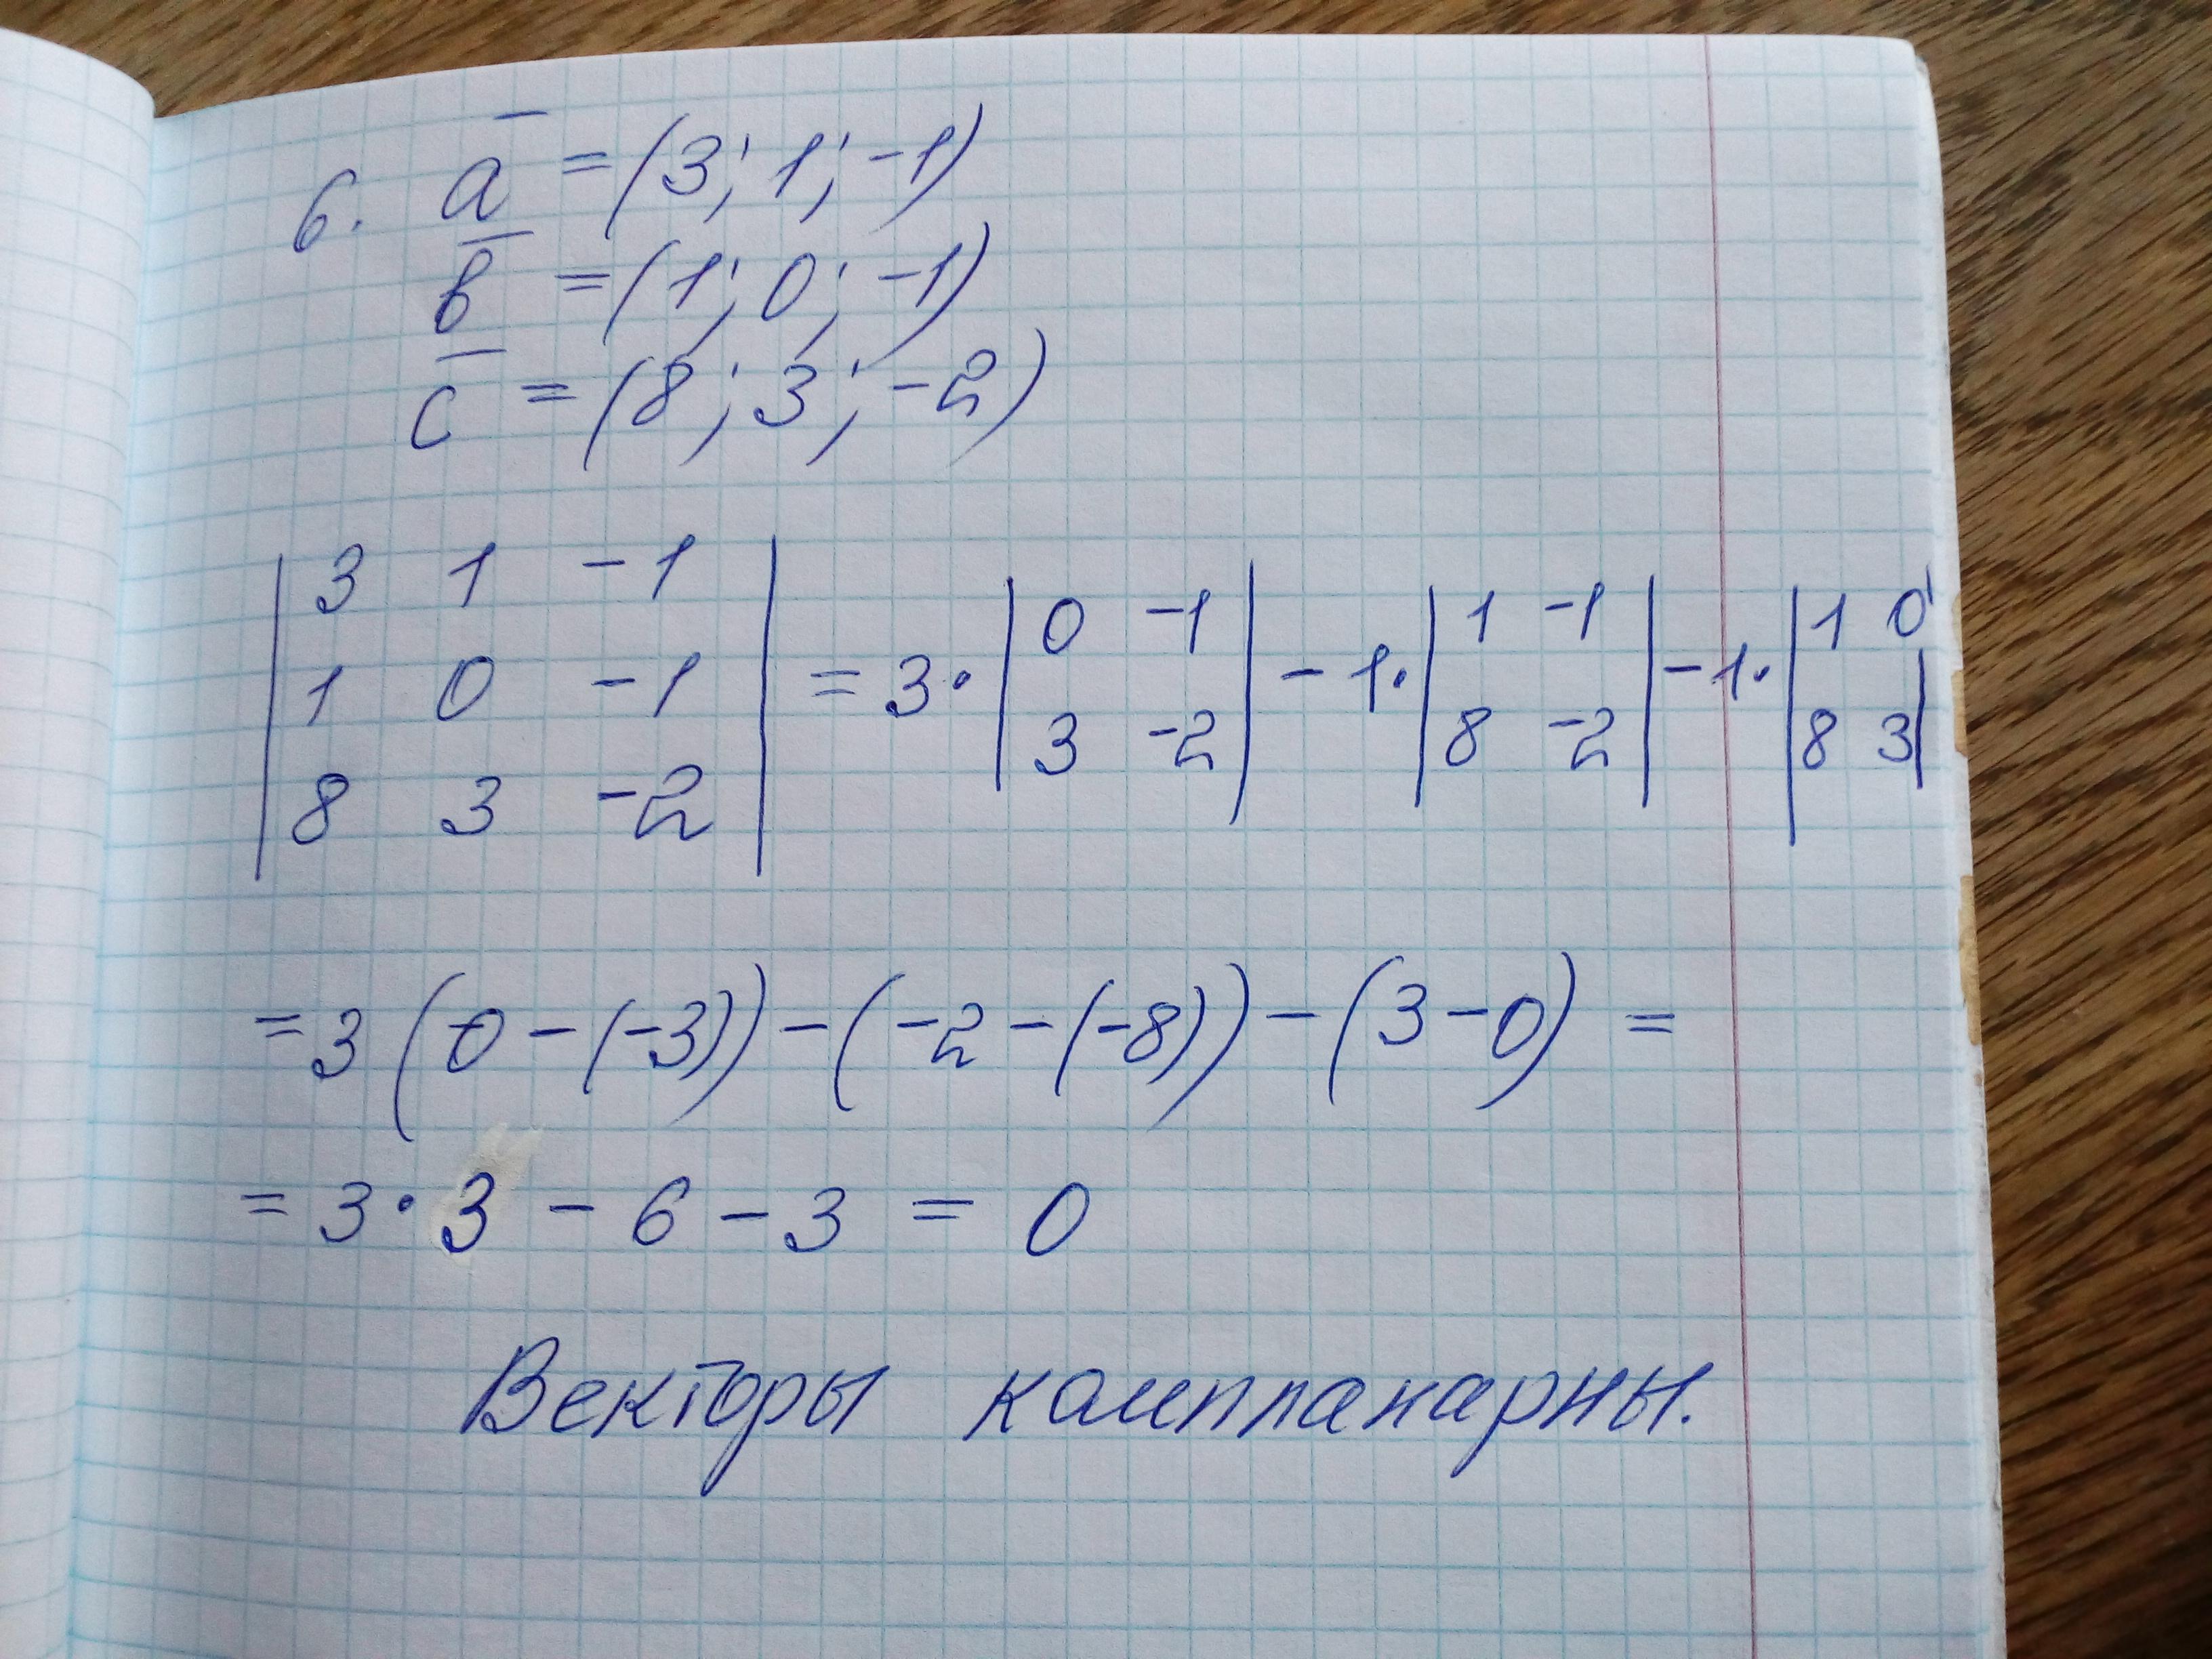 6. a̅ = (3; 1; -1)
b̅ = (1; 0; -1)
c̅ = (8; 3; -2)
| 3 1 -1 |
| 1 0 -1 | = 3· | 0 -1 | - 1· | 1 -1 | - 1· | 1 0 |
| 8 3 -2 | | 3 -2 | | 8 -2 | | 8 3 |
= 3 (0 - (-3)) - (-2 - (-8)) - (3 - 0) =
= 3 · 3 - 6 - 3 = 0
Векторы компланарны.